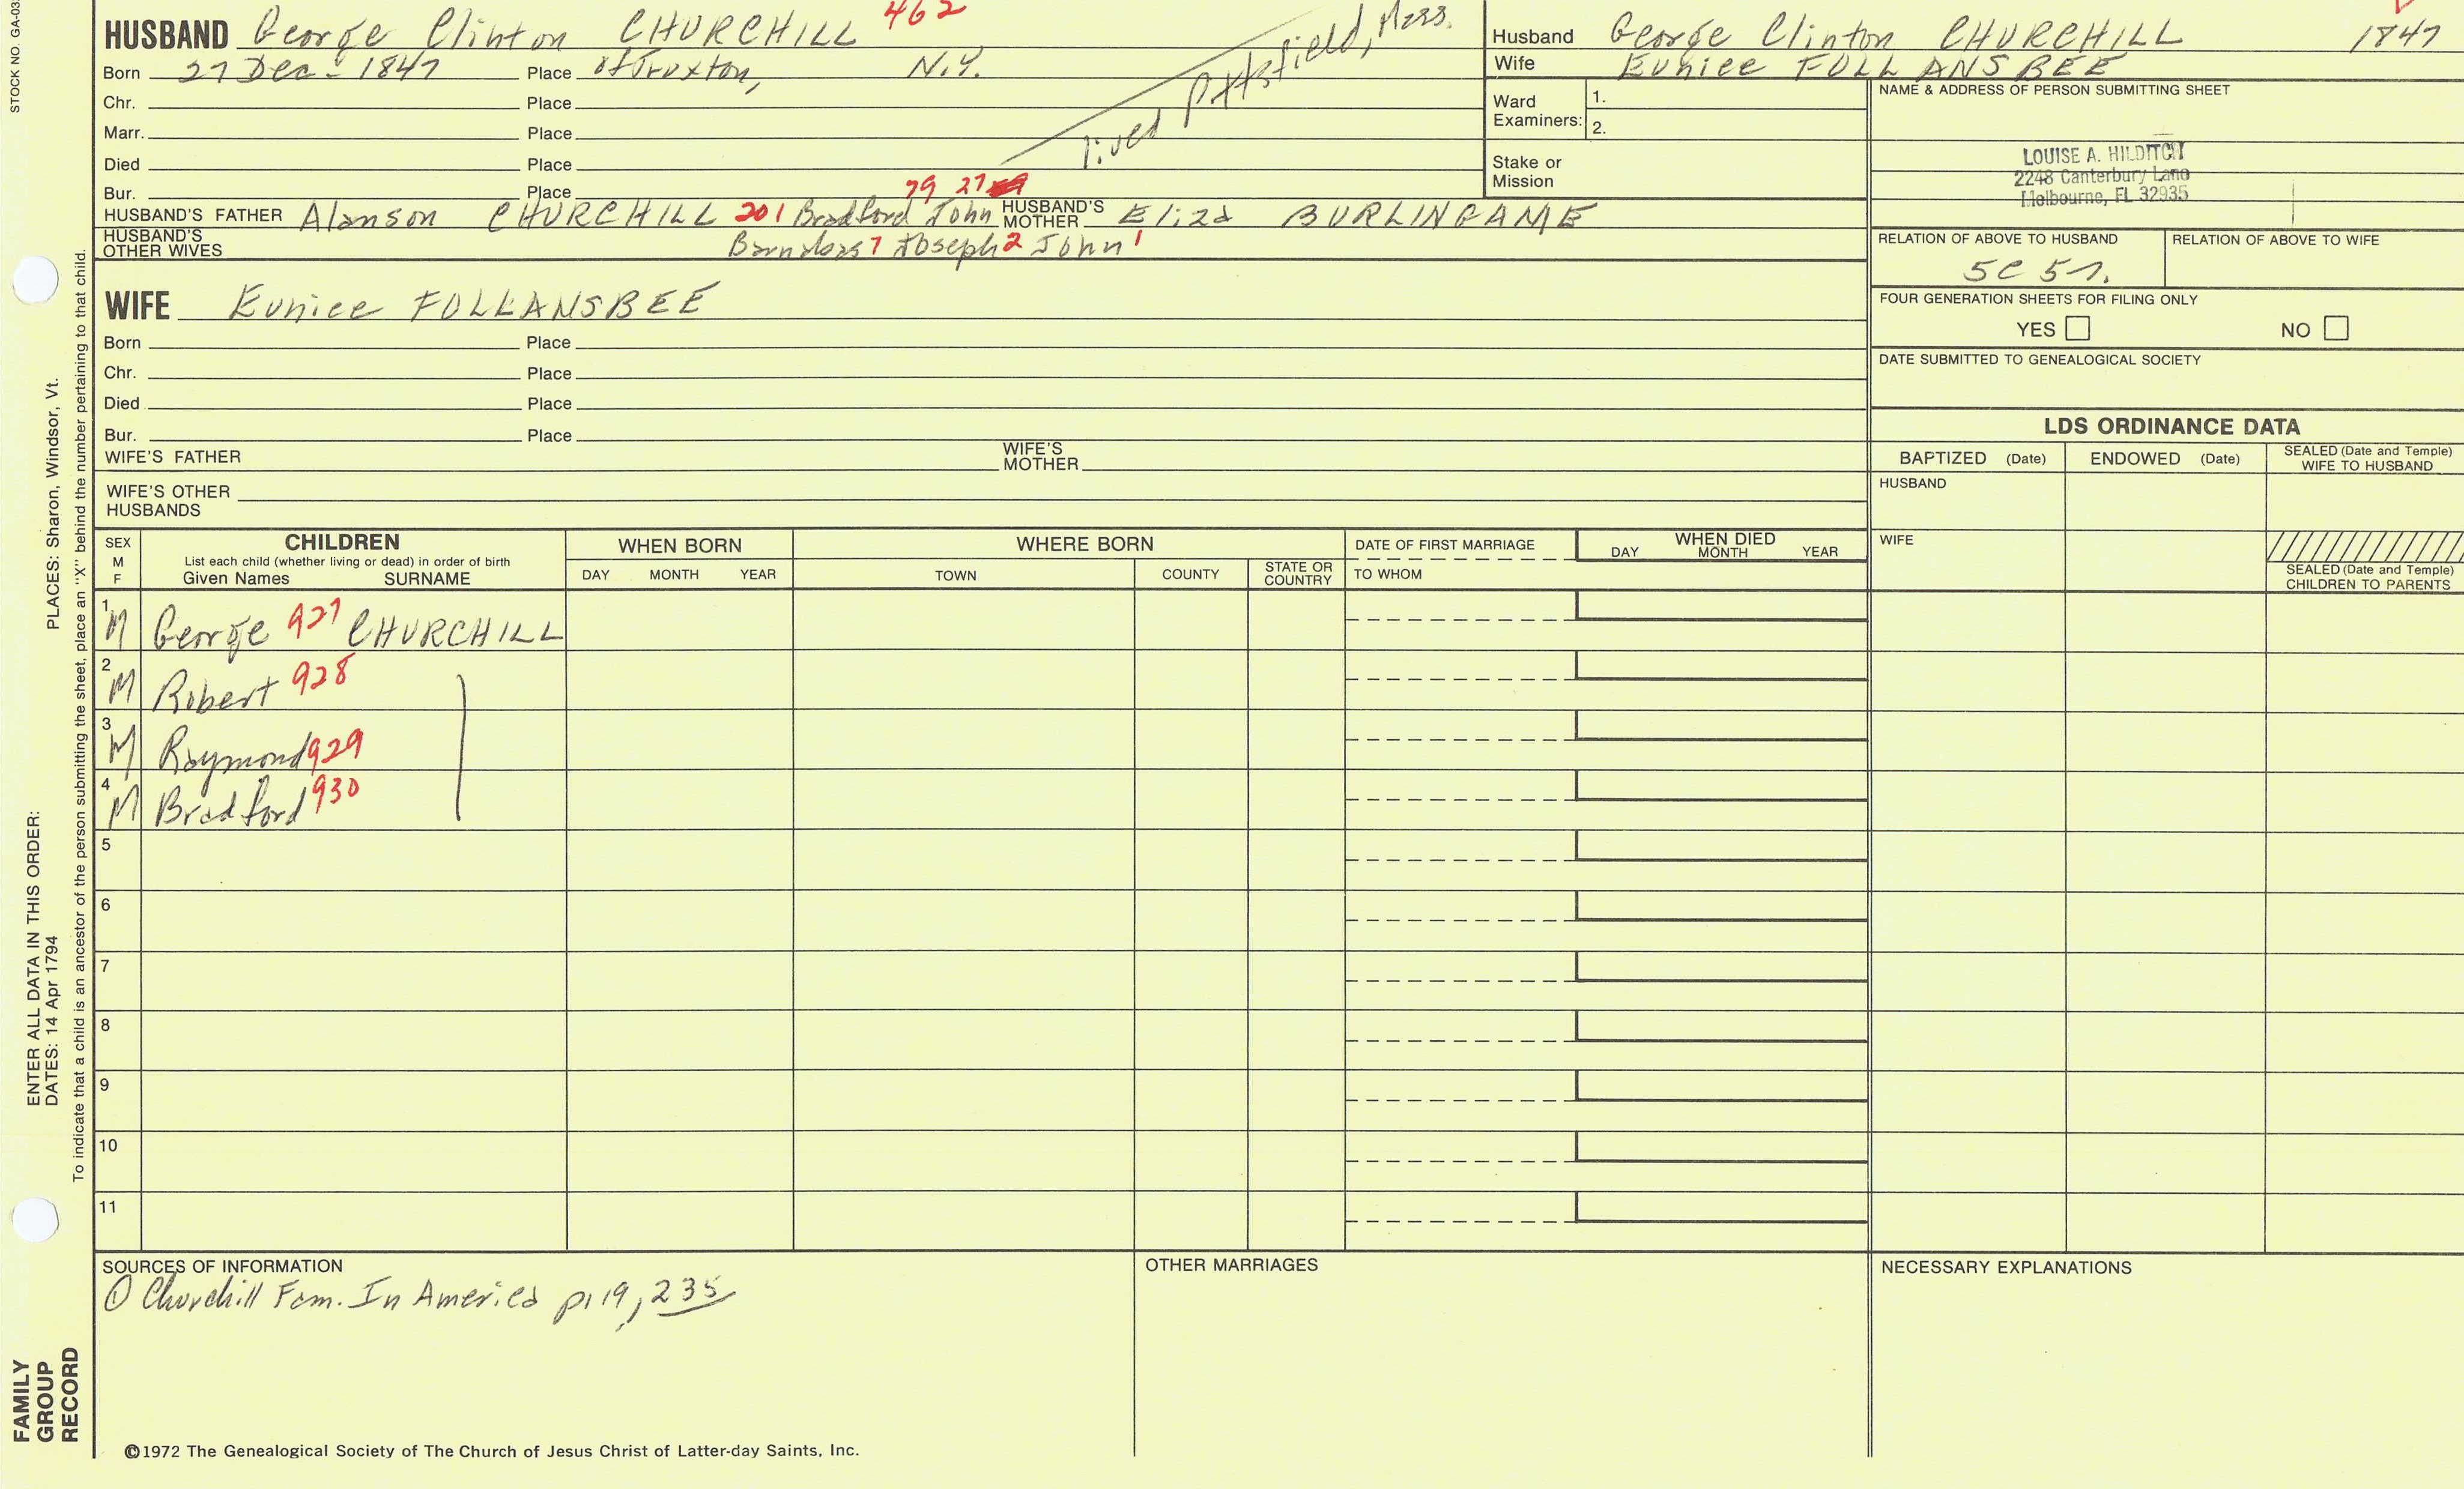 STOCK NO. GA-03
HUSBAND George Clinton CHURCHILL 462
Born 27 Dec - 1847 Place of Truxton, N.Y.
lived Pittsfield, Mass.
Chr. Place
Marr. Place
Died Place
Bur. Place
HUSBAND'S FATHER Alanson CHURCHILL 201 Bradford 79 John 27 HUSBAND'S MOTHER Eliza BURLINGAME
HUSBAND'S OTHER WIVES
Barnabas 7 Joseph 2 John 1
WIFE Eunice FOLLANSBEE
Born Place
Chr. Place
Died Place
Bur. Place
WIFE'S FATHER WIFE'S MOTHER
WIFE'S OTHER HUSBANDS
Husband George Clinton CHURCHILL 1847
Wife Eunice FOLLANSBEE
Ward Examiners: 1.
2.
Stake or Mission
NAME & ADDRESS OF PERSON SUBMITTING SHEET
LOUISE A. HILDITCH
2248 Canterbury Lane
Melbourne, FL 32935
RELATION OF ABOVE TO HUSBAND RELATION OF ABOVE TO WIFE
5C 5r.
FOUR GENERATION SHEETS FOR FILING ONLY
YES NO
DATE SUBMITTED TO GENEALOGICAL SOCIETY
LDS ORDINANCE DATA
BAPTIZED (Date) ENDOWED (Date) SEALED (Date and Temple) WIFE TO HUSBAND
HUSBAND
WIFE
SEALED (Date and Temple) CHILDREN TO PARENTS
SEX M F
CHILDREN
List each child (whether living or dead) in order of birth
Given Names SURNAME
WHEN BORN
DAY MONTH YEAR
WHERE BORN
TOWN COUNTY STATE OR COUNTRY
DATE OF FIRST MARRIAGE
TO WHOM
WHEN DIED
DAY MONTH YEAR
1 M George 927 CHURCHILL
2 M Robert 928
3 M Raymond 929
4 M Bradford 930
5
6
7
8
9
10
11
SOURCES OF INFORMATION
① Churchill Fam. In America p119, 235
OTHER MARRIAGES
NECESSARY EXPLANATIONS
©1972 The Genealogical Society of The Church of Jesus Christ of Latter-day Saints, Inc.
FAMILY GROUP RECORD
ENTER ALL DATA IN THIS ORDER:
DATES: 14 Apr 1794 PLACES: Sharon, Windsor, Vt.
To indicate that a child is an ancestor of the person submitting the sheet, place an "X" behind the number pertaining to that child.